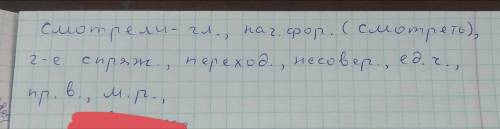 Смотрели- гл., нач. фор. (смотреть),
2-е спряж., переход., несовер., ед. ч.,
пр. в., м. р.,